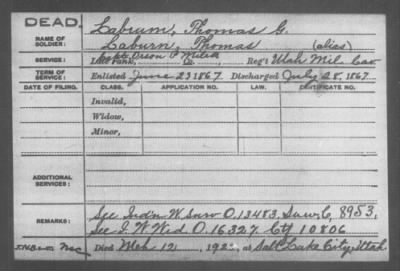 DEAD.
NAME OF SOLDIER: Labium, Thomas G.
Laburn, Thomas (alias)
SERVICE: Capt. Orson P. Miles
Late rank, Co. Reg't Utah Mil. Cav
TERM OF SERVICE: Enlisted June 23 1867 Discharged July 28, 1867
DATE OF FILING. CLASS. APPLICATION NO. LAW. CERTIFICATE NO.
Invalid,
Widow,
Minor,
ADDITIONAL SERVICES:
REMARKS: See Ind'n W. Surv O. 13483, Surv. C. 8953,
See I. W. Wid O. 16327 Ctf 10806
Died Mch 12, 192 , at Salt Lake City, Utah